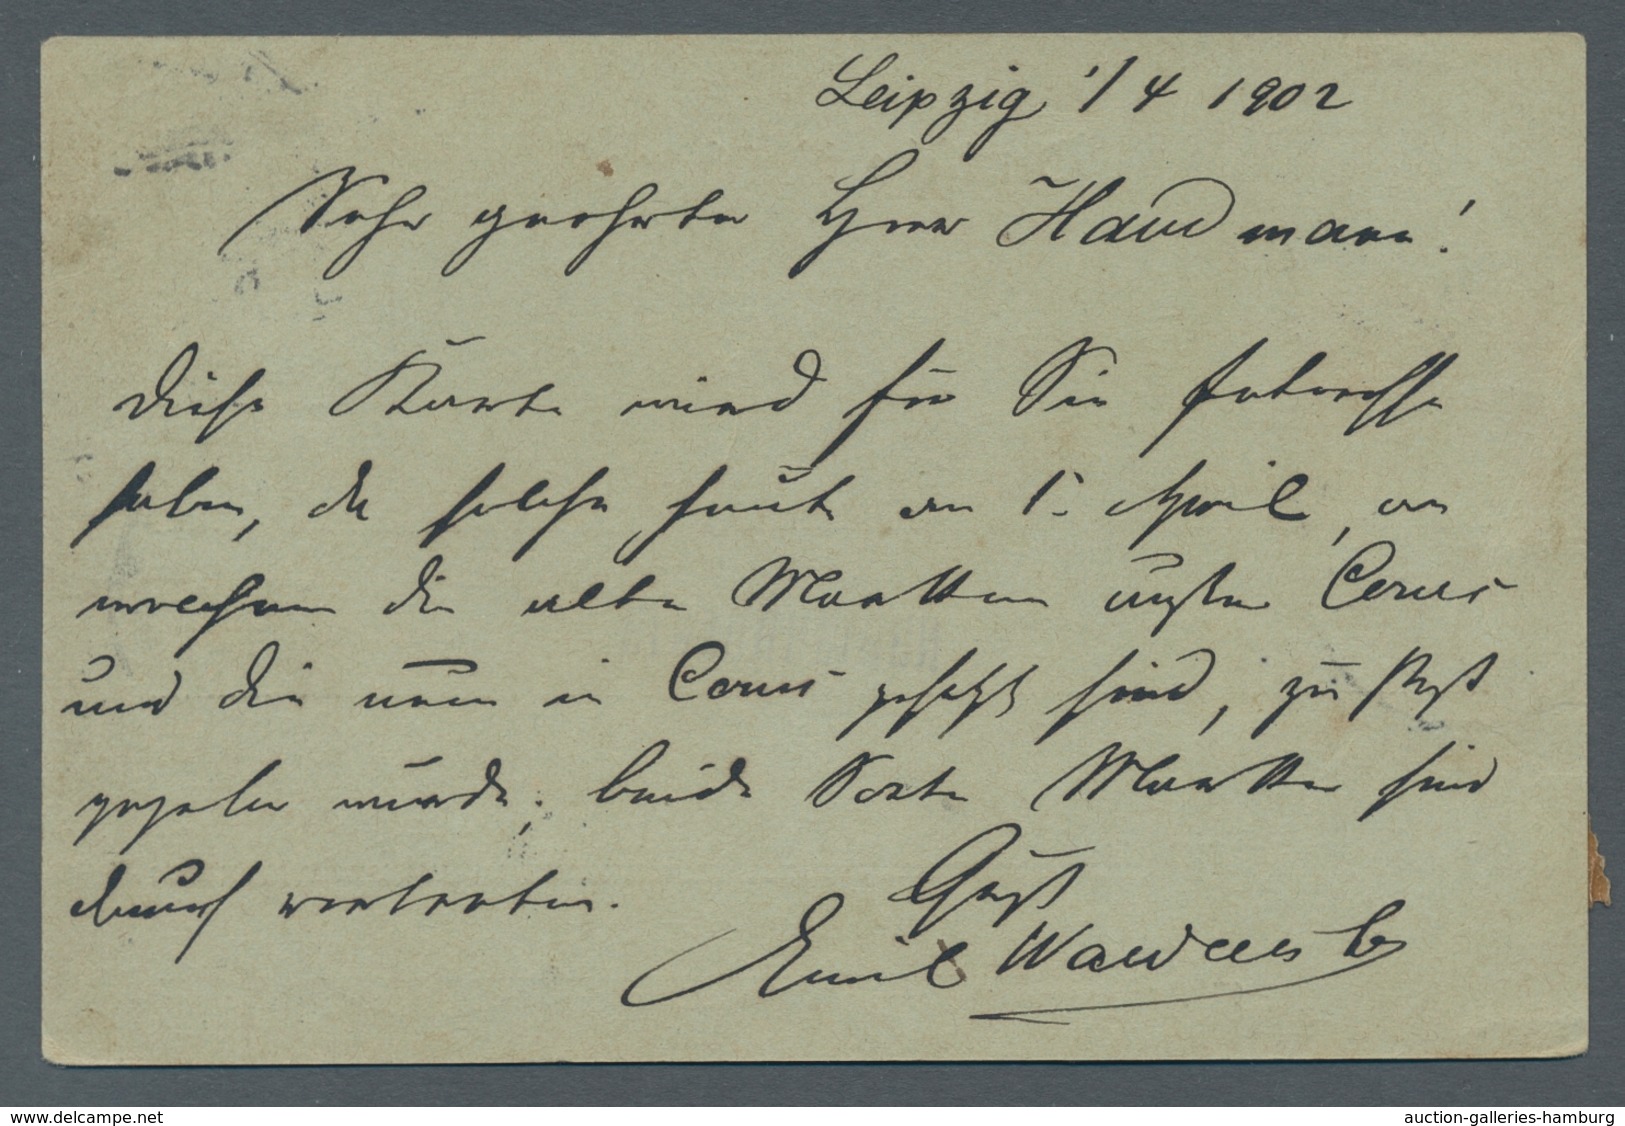 Leipzig 1/4 1902
Sehr geehrter Herr Handmann!
Diese Karte wird für Sie Interesse
haben, da solche heute am 1. April, an
welchem die alten Marken außer Cours
und die neuen in Cours gesetzt sind, zur Post
gegeben wurde; beide Sorten Marken sind
darauf vertreten.
Gruß
Emil
www.delcampe.net
auction-galleries-hamburg